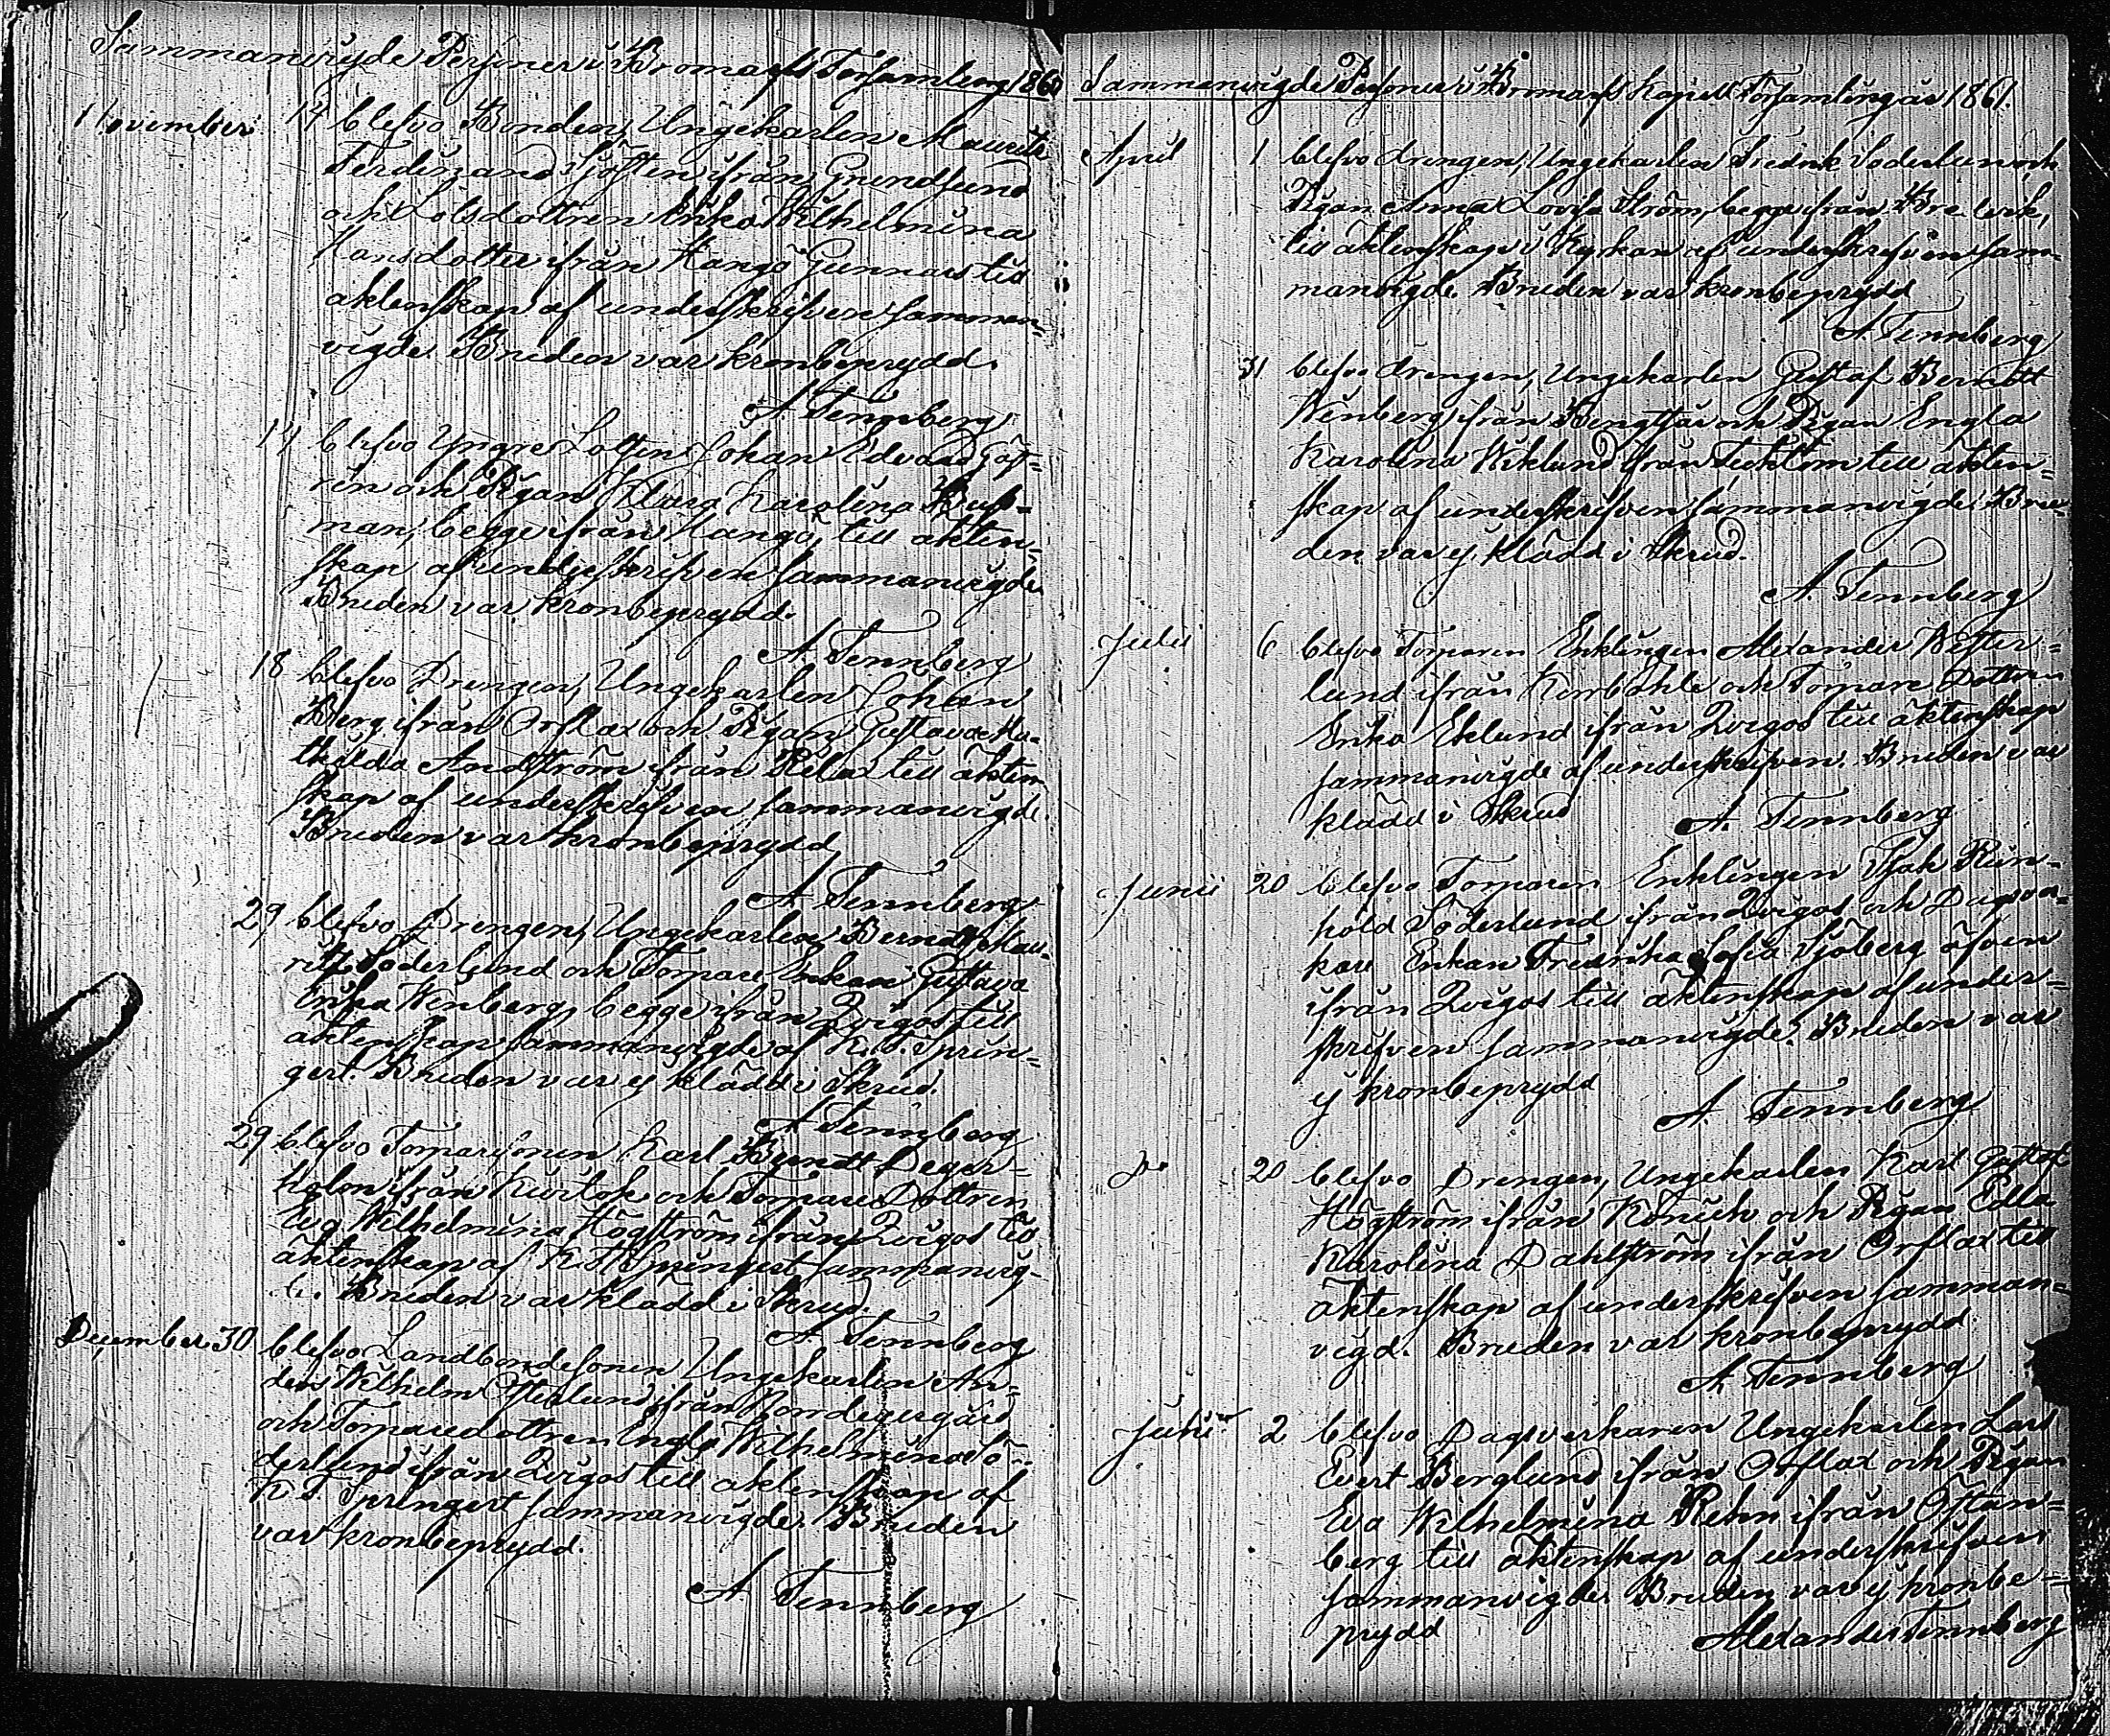 Sammanvigde Personer i Bromarfs Församling 1860
November 14 blefvo Bonden, Ungekarlen Mauritz
Ferdinand Sjösten ifrån Grundsund
och Lotsdottren Erika Wilhelmina
Hansdotter ifrån Hangö Gunnars till
äktenskap af underskrifven samman-
vigde. Bruden var kronbeprydd.
A. Tennberg
14 blefvo Yngre Lotten Johan Edvard
och Pigan Klara Karolina Bus-
man, begge ifrån Hangö, till äkten-
skap af underskrifven sammanvigde.
Bruden var kronbeprydd.
A. Tennberg
18 blefvo Drengen, Ungekarlen Johan
Berg ifrån Orslax och Pigan Gustava Ma-
thilda Andström ifrån Rilax till äkten-
skap af underskrifven sammanvigde.
Bruden var kronbeprydd
A. Tennberg
29 blefvo Drengen, Ungekarlen Berndt Mau-
ritz Söderlund och Torpare Enkan Gustava
Erika Winberg, begge ifrån Qvigos till
äktenskap sammanvigde af K. T. Sprin-
gert. Bruden var ej klädd i Skrud.
A. Tennberg
29 blefvo Torparsonen Karl Berndt Deger-
holm ifrån och Torpare Dottren
Eva Wilhelmina Högström ifrån Qvigos till
äktenskap af K. T. Springert sammanvig-
de. Bruden var klädd i Skrud.
A. Tennberg
December 30 blefvo Landbondesonen Ungekarlen An-
ders Wilhelm Österlund ifrån Norrdegergård
och Torparedottren Engla Wilhelmina Sö-
derlund ifrån Qvigos till äktenskap af
K. T. Springert sammanvigde. Bruden
var kronbeprydd.
A. Tennberg
Sammanvigde Personer i Bromarfs Kapell Församling år 1861.
April 1 blefvo drengen, Ungekarlen Fredrik Söderlund och
Pigan Anna Lovisa Ström, begge ifrån
till äktenskap i Kyrkan af underskrifven sam-
manvigde. Bruden var kronbeprydd
A. Tennberg
31 blefvo drengen, Ungekarlen Gustaf Berndt
Winberg ifrån Bengtsår och Pigan Engla
Karolina Wiklund ifrån Täcktom till äkten-
skap af underskrifven sammanvigde. Bru-
den var ej klädd i Skrud.
A. Tennberg
Julii 6 blefvo Torparen Enklingen Alexander Wester-
lund ifrån Norrböhle och Torpare Dottren
Erika Eklund ifrån Qvigos till äktenskap
sammanvigde af underskrifven. Bruden var
klädd i Skrud
A. Tennberg
Junii 20 blefvo Torparen Enklingen Isak Rein-
hold Söderlund ifrån Qvigos och Dagsvar-
kare Enkan Fredrika Sofia Sjöberg äfven
ifrån Qvigos till äktenskap af under-
skrifven sammanvigde. Bruden var
ej kronbeprydd
A. Tennberg
Do 20 blefvo Drengen, Ungekarlen Karl Gustaf
Högström ifrån och Pigan Edla
Karolina Dahlström ifrån Orslax till
äktenskap af underskrifven samman-
vigd. Bruden var kronbeprydd
A. Tennberg
Julii 2 blefvo Dagsverkaren Ungekarlen Karl
Evert Berglund ifrån Orslax och Pigan
Eva Wilhelmina Rehn ifrån Östan-
berg till äktenskap af underskrifven
sammanvigde. Bruden var ej kronbe-
prydd
Alexander Tennberg